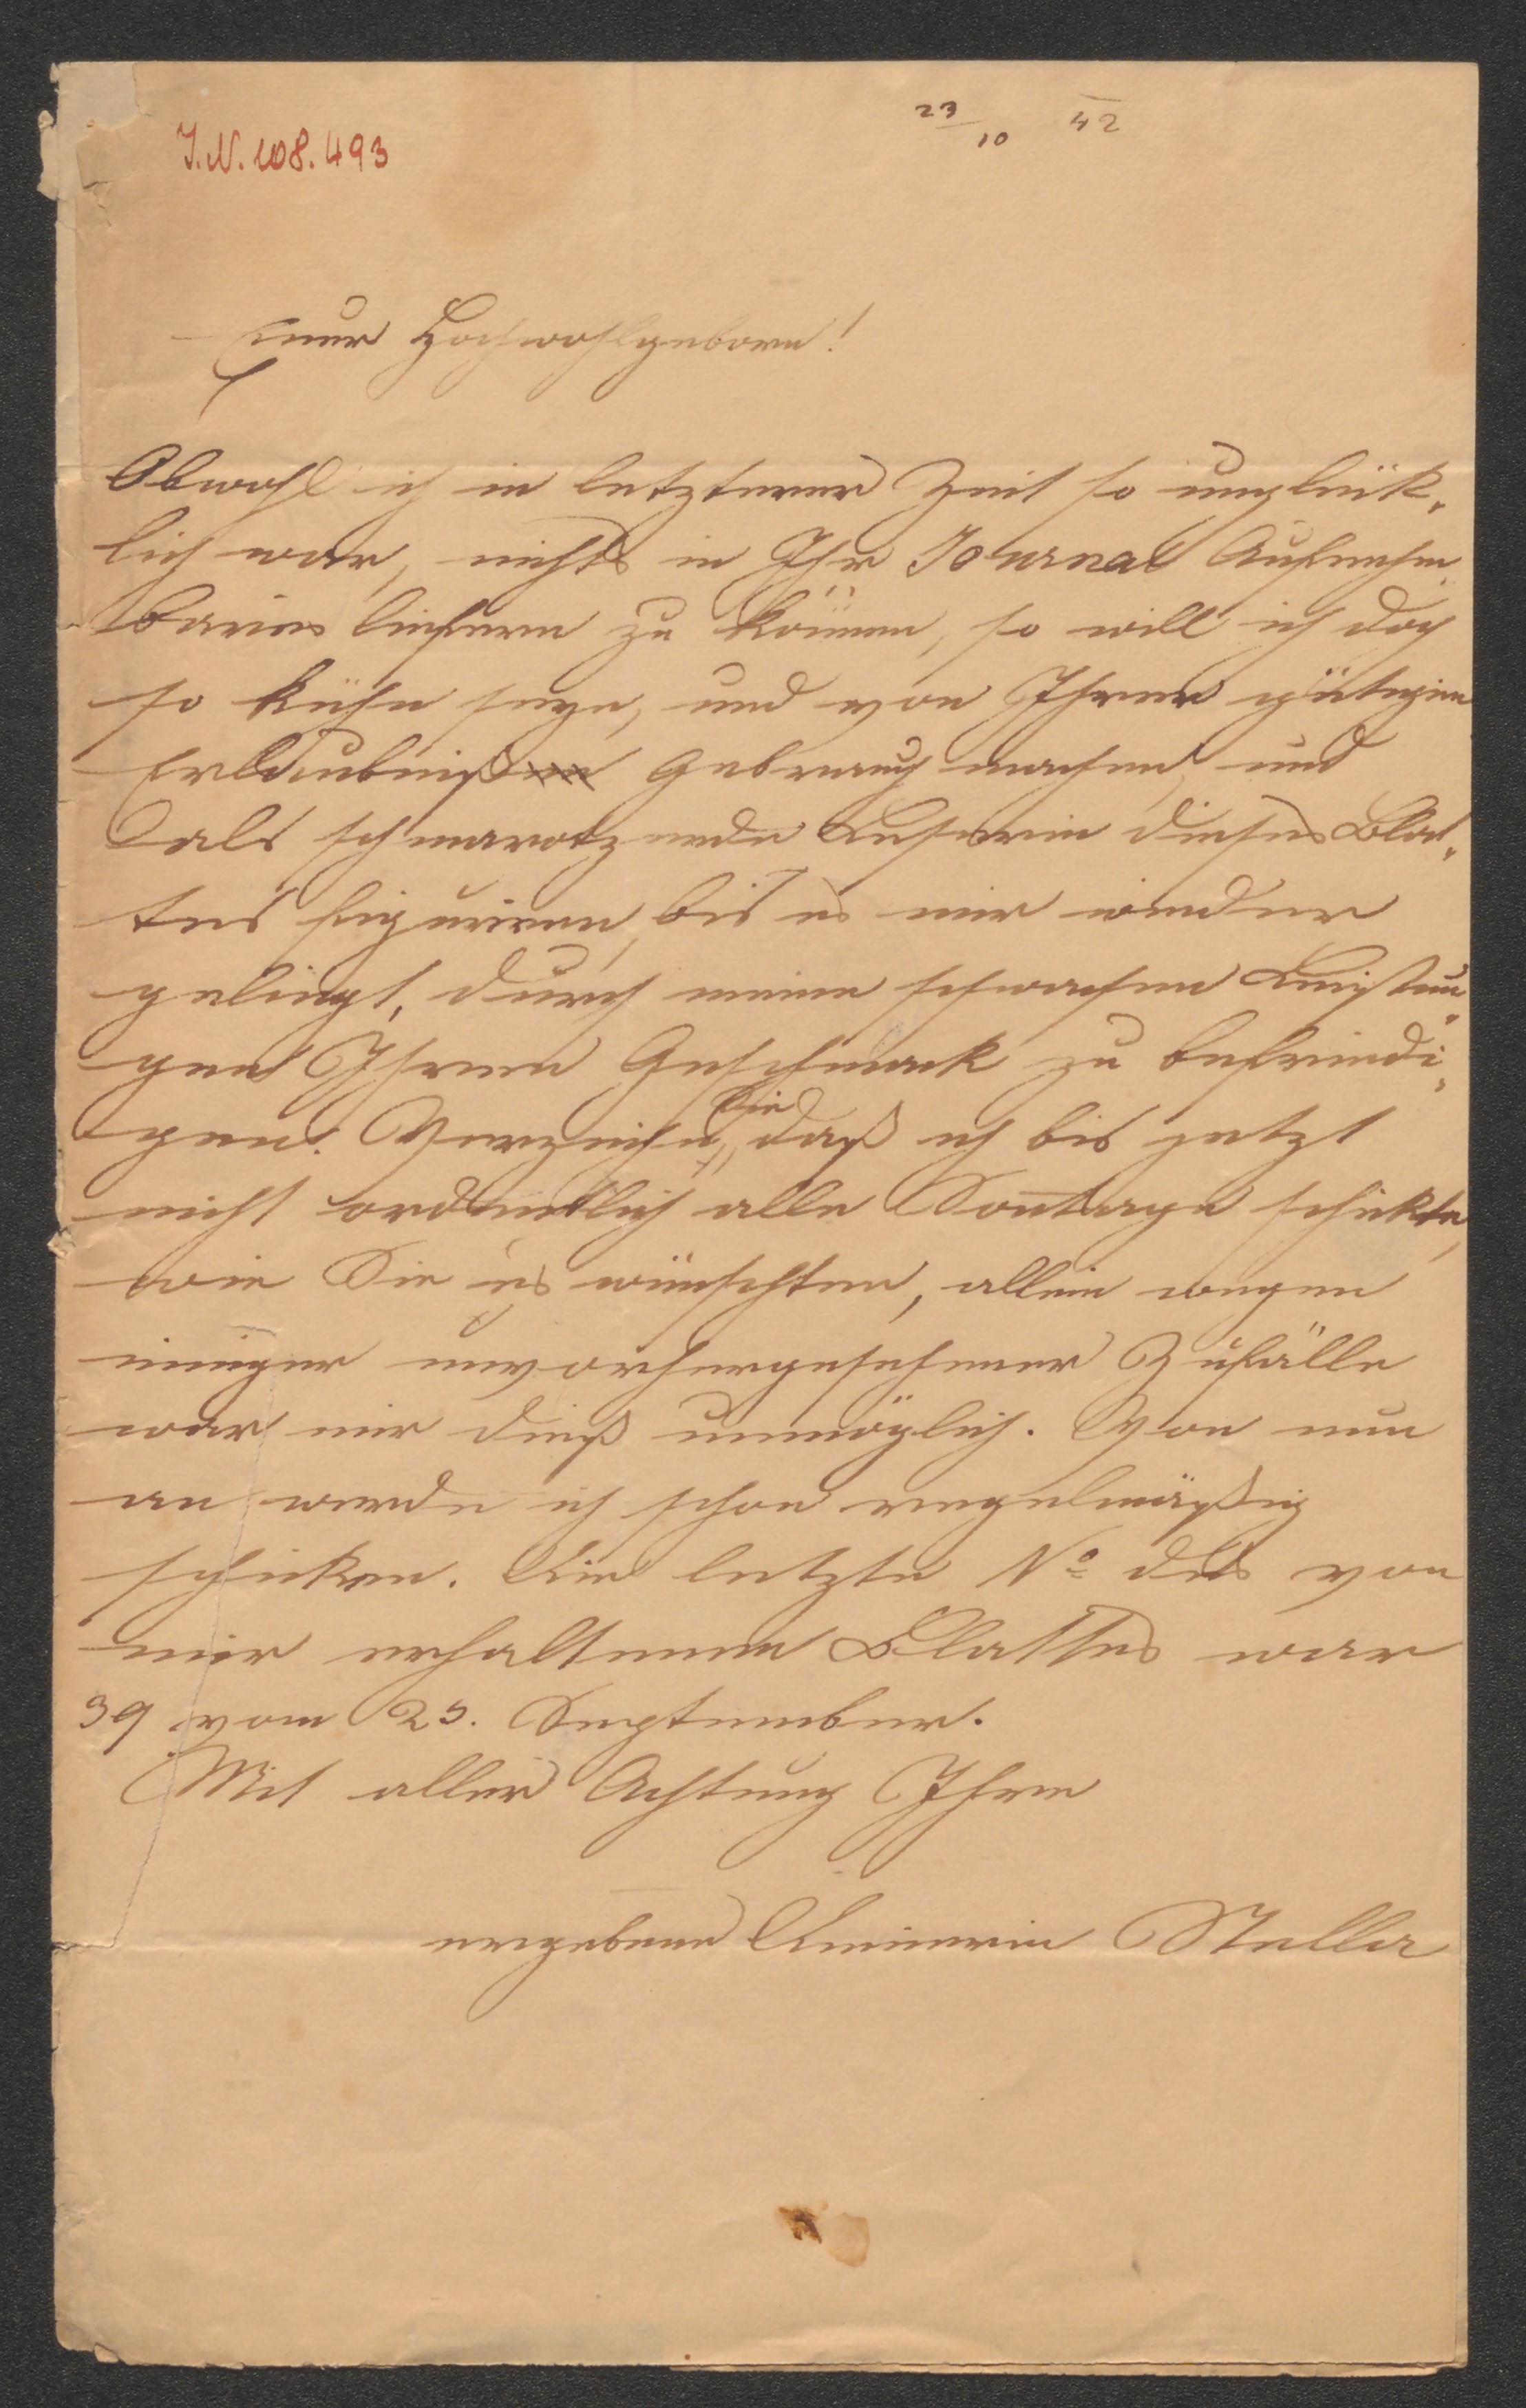 23/10 42
I.N. 108.493
Euer Hochwohlgeborn!
Obwohl ich in letzterer Zeit so unglük„
lich war, nichts in Ihr Journal Aufnehm„
bares liefern zu können, so will ich doch
so kühn seyn, und von Ihrer gütigen
Erlaubniß Gebrauch machen, und
als schmarotzende Leserin dieses Blat„
tes figuriren, bis es mir wieder
gelingt, durch meine schwachen Leistun„
gen Ihren Geschmack zu befriedi„
gen. Verzeihen Sie, daß ich bis jetzt
nicht ordentlich alle Sontage schikte,
wie Sie es wünschten, allein wegen
einiger unvorhergesehener Zufälle
war mir dieß unmöglich. Von nun
an werde ich schon regelmäßig
schicken. Die letzte No des von
mir erhaltenen Blattes war
39 vom 25. September.
Mit aller Achtung Ihre
ergebene Dienerin Stella